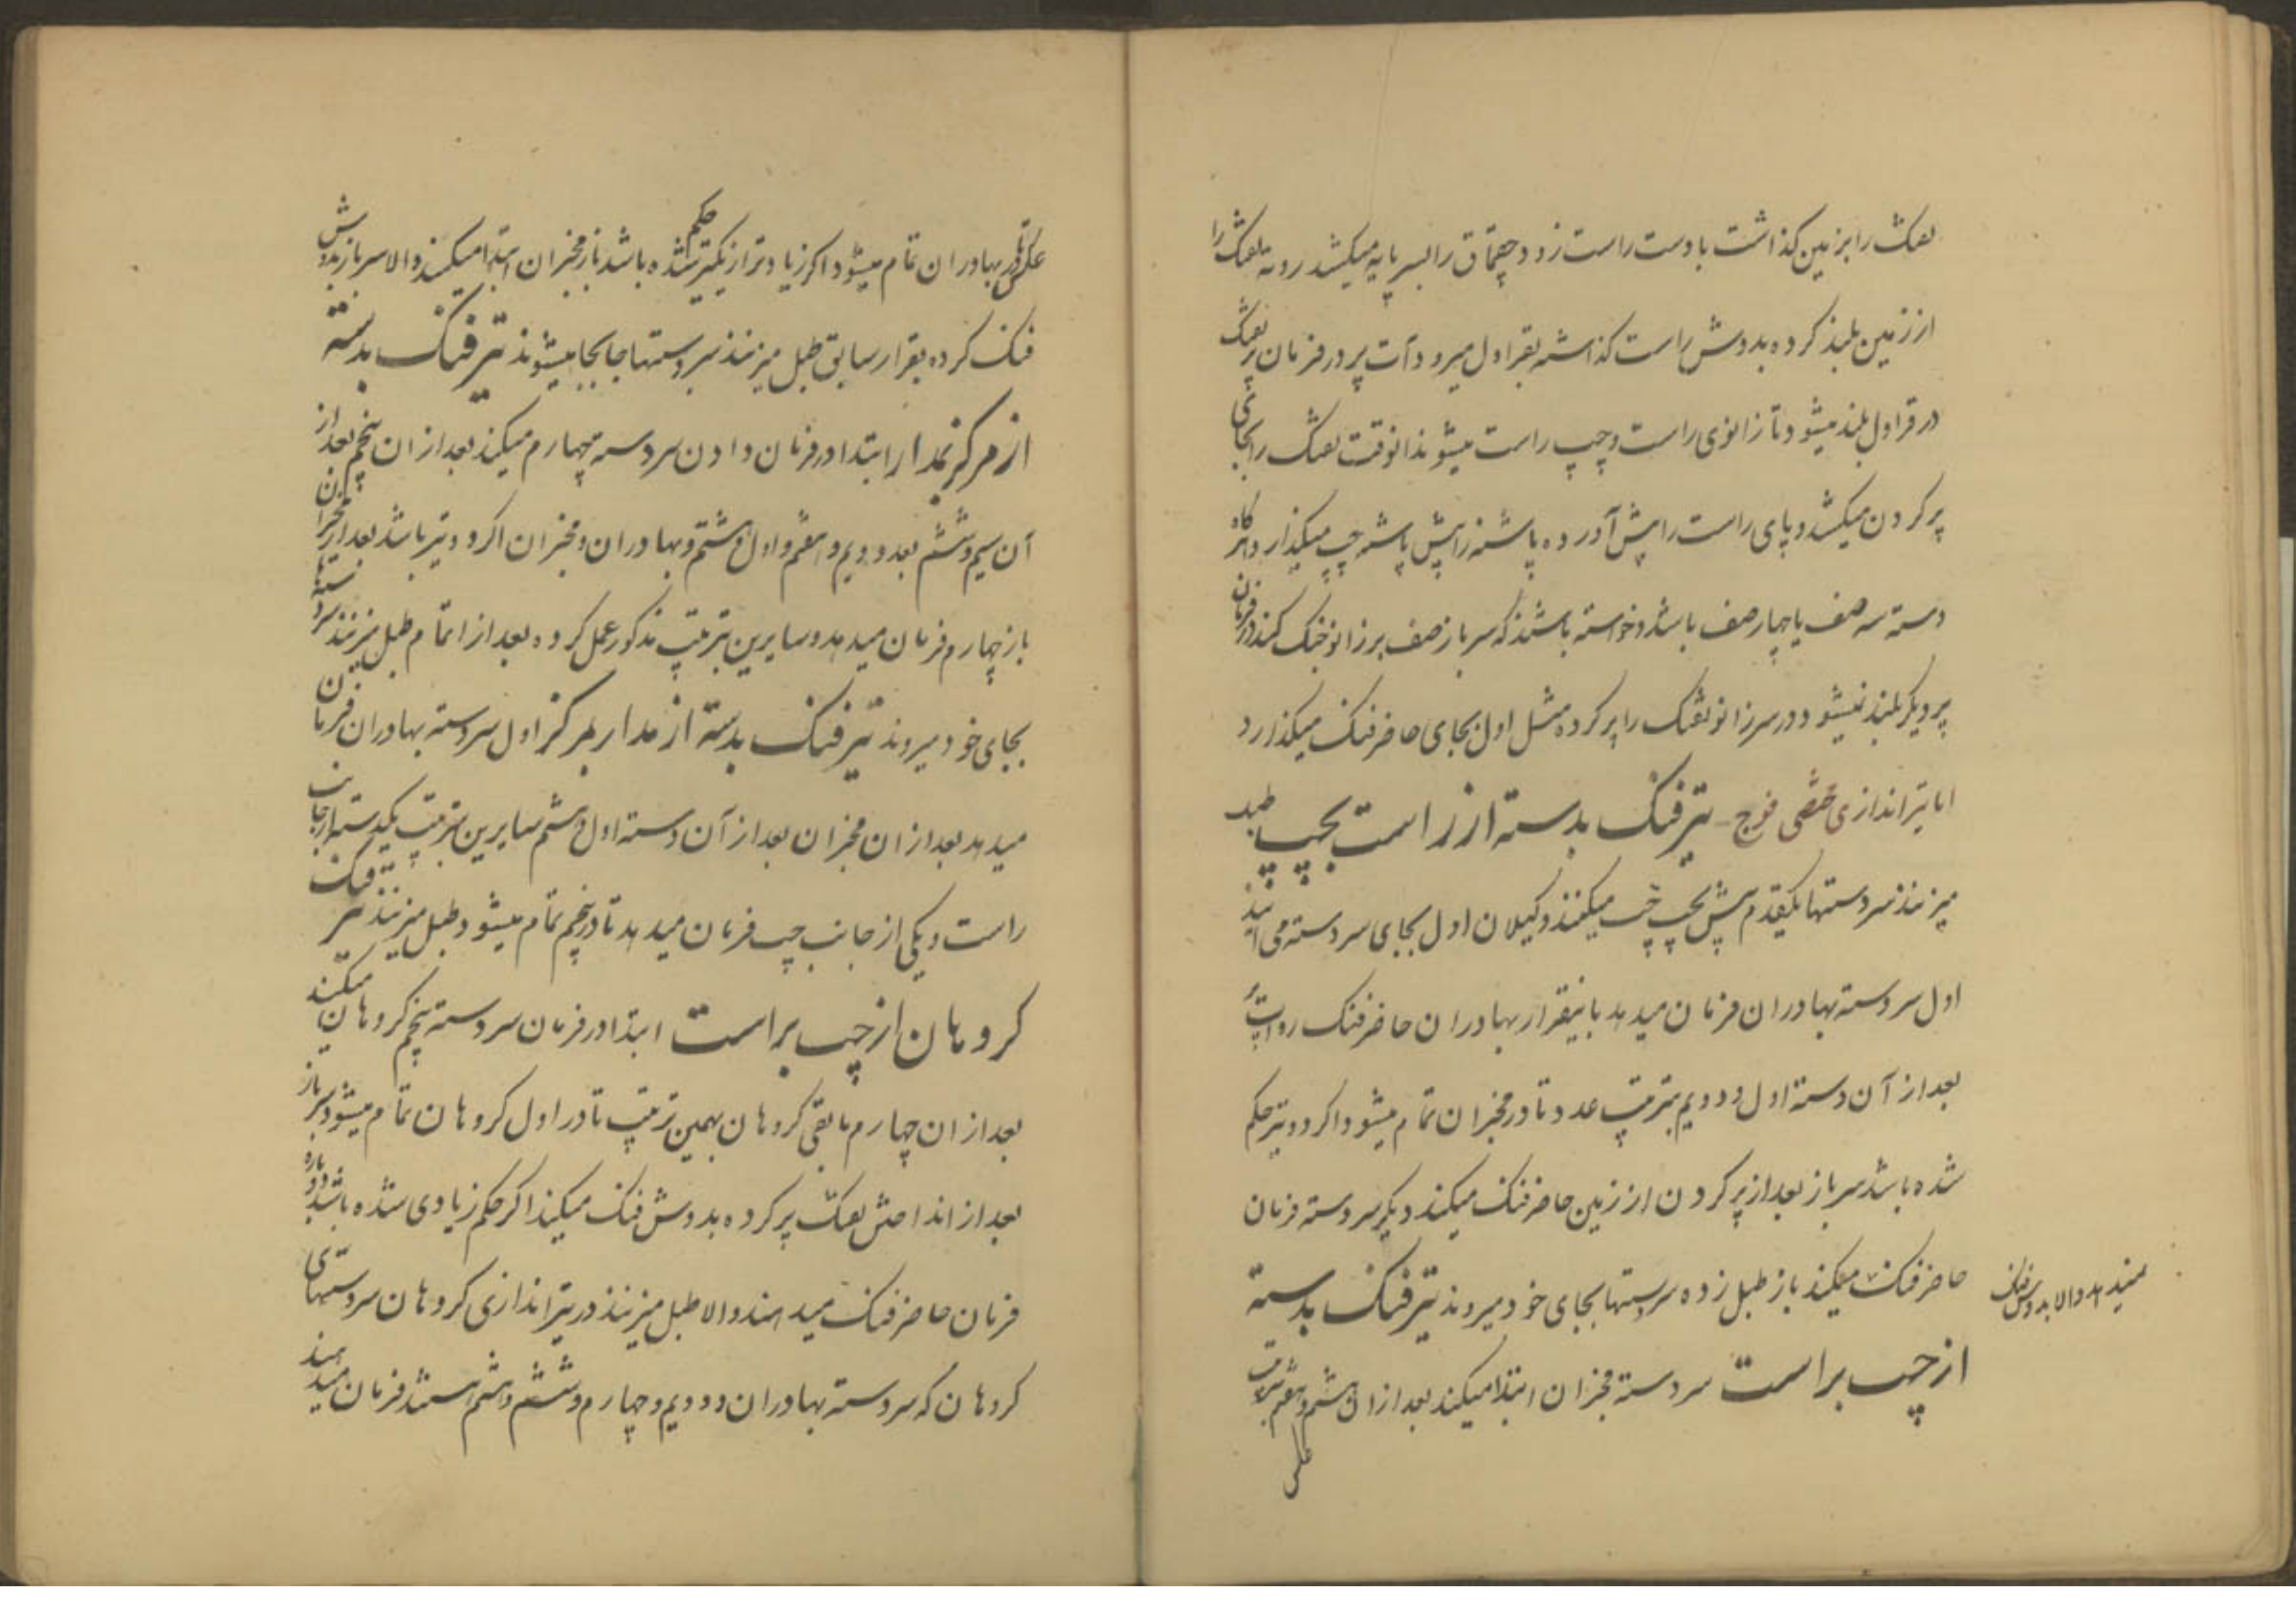 تفنک را بر زمین کذاشت با دست راست زود چقماق را بسر پایه میکشد رو به تفنک را
از زمین بلند کرده بدوش راست کذاشته بقراول میرود آت پر در فرمان پر تفنک
در قراول بلند میشود تا زانوی راست و چپ راست میشوند انوقت تفنک را بجای
پر کردن میکشد و پای راست را پیش آورده پاشنه را پیش پاشنه چپ میکذارد و اکر
دسته سه صف یا چهار صف باشد و خواسته باشند که سرباز صف بر زانو جنک کند در فرمان
پر دیکر بلند نمیشود در سر زانو تفنک را پر کرده مثل اول بجای حاضر فنک میکذارد
اما تیراندازی مشقی فوج تیر فنک بدسته از راست بچپ طبل
میزنند سردستها یکقدم پیش بچپ چپ میکنند وکیلان اول بجای سردسته می آیند
اول سردسته بهادران فرمان میدهد باینقرار بهادران حاضر فنک رو آت
بعد از آن دسته اول و دویم بترتیب عدد تا در مخبران تمام میشود اکر دو تیر حکم
شده باشد سرباز بعد از پر کردن از زمین حاضر فنک میکند دیکر سردسته فرمان
حاضر فنک میکند باز طبل زده سردستها بجای خود میروند تیر فنک بدسته
نمیدهد والا بدوش فنک
از چپ براست سردسته مخبران ابتدا میکند بعد از ان هشتم و هفتم بترتیب
عکس
عکس تا در بهادران تمام میشود اکر زیادتر از یکتیر حکم شده باشد باز مخبران ابتدا میکنند والا سرباز بدوش
فنک کرده بقرار سابق طبل میزنند سردستها جابجا میشوند تیر فنک بدسته
از مرکز بمدار ابتدا در فرمان دادن سردسته چهارم میکند بعد از ان پنجم بعد از
آن سیم و ششم بعد دویم و هفتم و اول و هشتم و بهادران و مخبران اکر دو تیر باشد بعد از مخبران
باز چهارم فرمان میدهد و سایرین بترتیب مذکور عمل کرده بعد از اتمام طبل میزنند سردستها
بجای خود میروند تیر فنک بدسته از مدار بمرکز اول سردسته بهادران فرمان
میدهد بعد از ان مخبران بعد از آن دسته اول و هشتم سایرین بترتیب یکدسته از جانب
راست و یکی از جانب چپ فرمان میدهد تا در پنجم تمام میشود و طبل میزنند تیر فنک
کروهان از چپ براست ابتدا در فرمان سردسته پنجم کروهان میکند
بعد از ان چهارم مابقی کروهان بهمین ترتیب تا در اول کروهان تمام میشود سرباز
بعد از انداختن تفنک پر کرده بدوش فنک میکند اکر حکم زیادی شده باشد دوباره
فرمان حاضر فنک میدهند والا طبل میزنند در تیراندازی کروهان سردستهای
کروهان که سردسته بهادران و دویم و چهارم و ششم و هشتم هستند فرمان میدهند